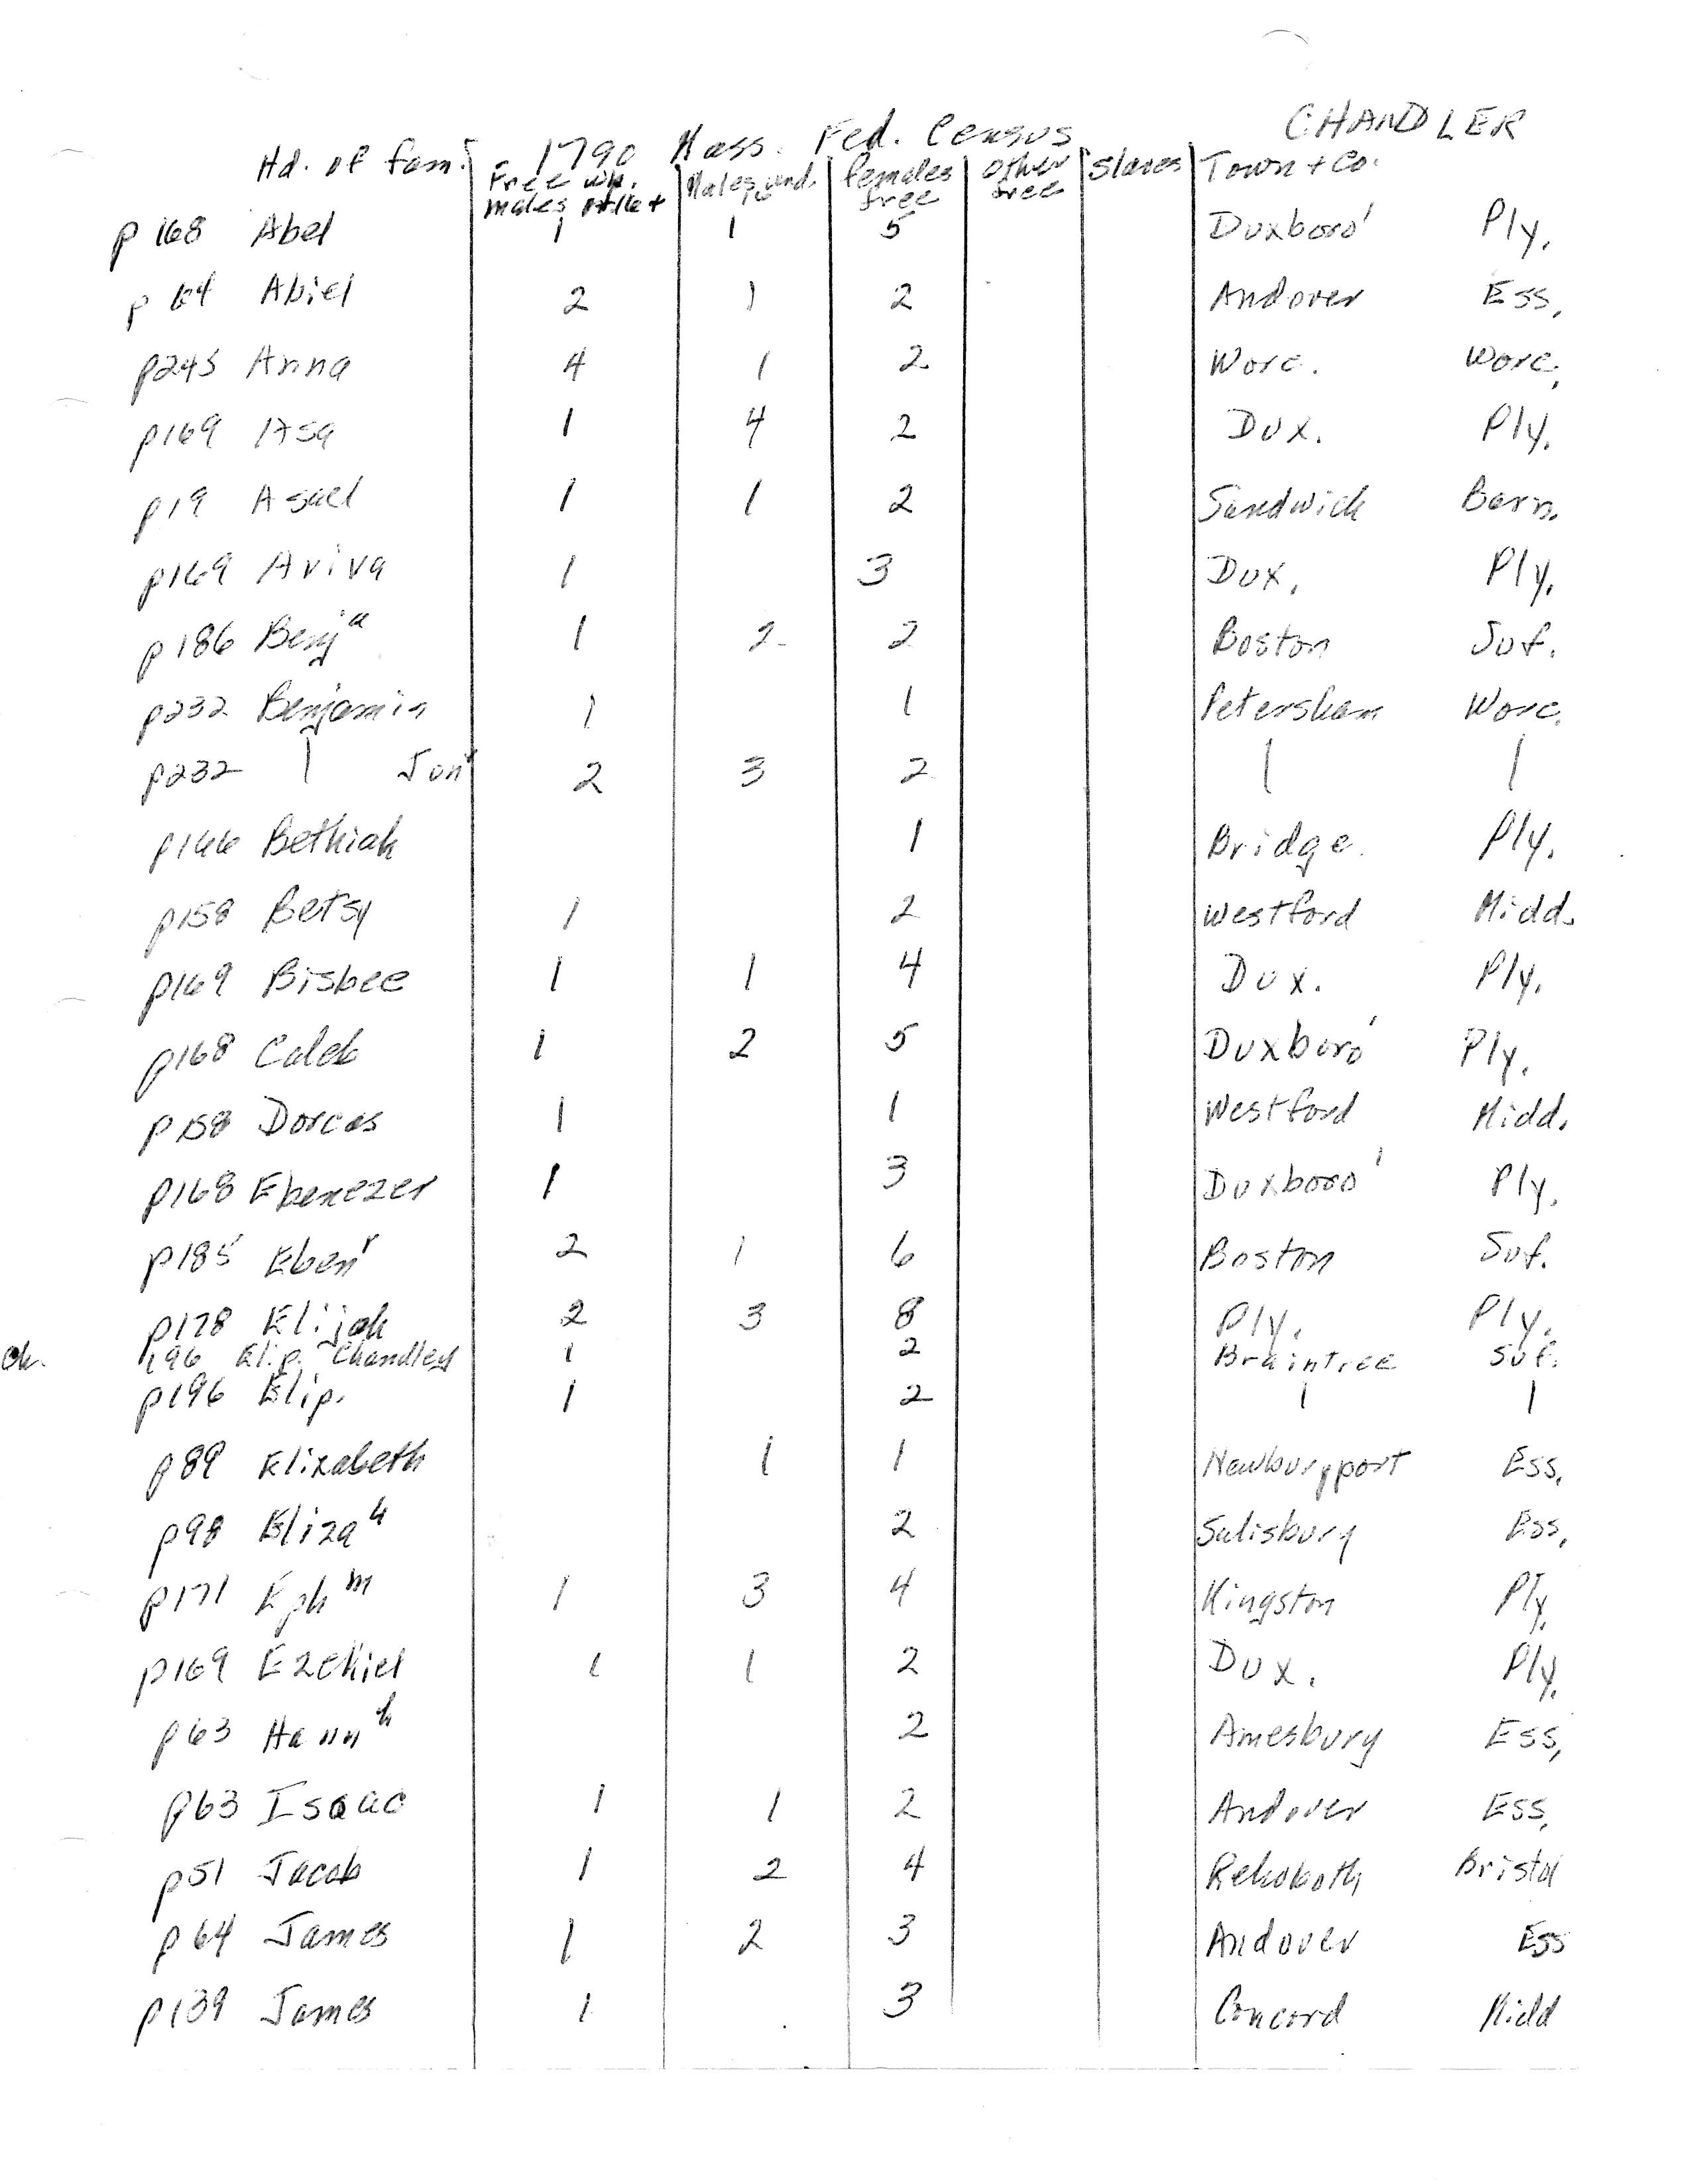 CHANDLER
1790 Mass. Fed. Census
Hd. of fam. Free wh. males of 16+ Males und. 16 females free other free Slaves Town + Co.
p 168 Abel 1 1 5 Duxboro' Ply.
p 64 Abiel 2 1 2 Andover Ess.
p243 Anna 4 1 2 Worc. Worc.
p169 Asa 1 4 2 Dux. Ply.
p19 Asael 1 1 2 Sandwich Barn.
p169 Aviva 1 3 Dux. Ply.
p186 Benja 1 2 2 Boston Suf.
p232 Benjamin 1 1 Petersham Worc.
p232 | Junr 2 3 2 | |
p166 Bethiah 1 Bridge. Ply.
p158 Betsy 1 2 Westford Midd.
p169 Bisbee 1 1 4 Dux. Ply.
p168 Caleb 1 2 5 Duxboro' Ply.
p158 Dorcas 1 1 Westford Midd.
p168 Ebenezer 1 3 Duxboro' Ply.
p185 Ebenr 2 1 6 Boston Suf.
p178 Elijah 2 3 8 Ply. Ply.
Ch. 196 Elip. Chandley 1 2 Braintree Suf.
p196 Elip. 1 2 | |
p89 Elizabeth 1 1 Newburyport Ess.
p98 Elizah 2 Salisbury Ess.
p171 Ephm 1 3 4 Kingston Ply.
p169 Ezekiel 1 1 2 Dux. Ply.
p63 Hannh 2 Amesbury Ess,
p63 Isaac 1 1 2 Andover Ess,
p51 Jacob 1 2 4 Rehoboth Bristol
p64 James 1 2 3 Andover Ess
p139 James 1 3 Concord Midd